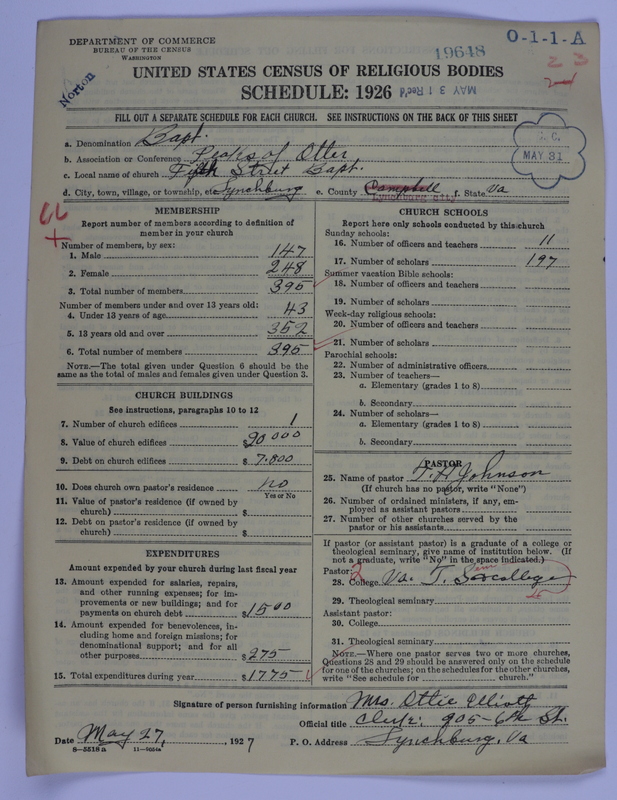 DEPARTMENT OF COMMERCE
BUREAU OF THE CENSUS
WASHINGTON
Norton
19648
O-1-1-A
2 3
UNITED STATES CENSUS OF RELIGIOUS BODIES
SCHEDULE: 1926
MAY 31 Rec'd
FILL OUT A SEPARATE SCHEDULE FOR EACH CHURCH. SEE INSTRUCTIONS ON THE BACK OF THIS SHEET
MAY 31
a. Denomination Bapt.
b. Association or Conference Peaks of Otter
c. Local name of church Fifth Street Bapt.
d. City, town, village, or township, etc. Lynchburg e. County Campbell f. State Va
Lynchburg city
MEMBERSHIP
Report number of members according to definition of
member in your church
Number of members, by sex:
1. Male 147
2. Female 248
3. Total number of members 395
Number of members under and over 13 years old:
4. Under 13 years of age 43
5. 13 years old and over 352
6. Total number of members 395
NOTE.—The total given under Question 6 should be the
same as the total of males and females given under Question 3.
CHURCH BUILDINGS
See instructions, paragraphs 10 to 12
7. Number of church edifices 1
8. Value of church edifices $ 20000
9. Debt on church edifices $ 7.800
10. Does church own pastor's residence no
Yes or No
11. Value of pastor's residence (if owned by
church) $
12. Debt on pastor's residence (if owned by
church) $
EXPENDITURES
Amount expended by your church during last fiscal year
13. Amount expended for salaries, repairs,
and other running expenses; for im-
provements or new buildings; and for
payments on church debt $ 1500
14. Amount expended for benevolences, in-
cluding home and foreign missions; for
denominational support; and for all
other purposes $ 275
15. Total expenditures during year $ 1775
CHURCH SCHOOLS
Report here only schools conducted by this church
Sunday schools:
16. Number of officers and teachers 11
17. Number of scholars 197
Summer vacation Bible schools:
18. Number of officers and teachers
19. Number of scholars
Week-day religious schools:
20. Number of officers and teachers
21. Number of scholars
Parochial schools:
22. Number of administrative officers
23. Number of teachers—
a. Elementary (grades 1 to 8)
b. Secondary
24. Number of scholars—
a. Elementary (grades 1 to 8)
b. Secondary
PASTOR
25. Name of pastor T. H Johnson
(If church has no pastor, write "None")
26. Number of ordained ministers, if any, em-
ployed as assistant pastors
27. Number of other churches served by the
pastor or his assistants
If pastor (or assistant pastor) is a graduate of a college or
theological seminary, give name of institution below. (If
not a graduate, write "No" in the space indicated.)
Pastor: 2
28. College Va. T. Sem college
29. Theological seminary
Assistant pastor:
30. College
31. Theological seminary
NOTE.—Where one pastor serves two or more churches,
Questions 28 and 29 should be answered only on the schedule
for one of the churches; on the schedules for the other churches,
write "See schedule for church."
Signature of person furnishing information Mrs. Ottie Elliott
Official title Clerk: 905-6th St.
Date May 27, 1927 P. O. Address Lynchburg, Va
8-5518 a 11-9084a